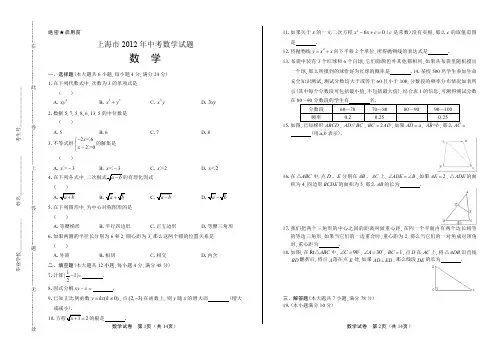 绝密★启用前
上海市2012年中考数学试题
数 学
一、选择题(本大题共6小题,每小题4分,满分24分)
1.在下列代数式中,次数为3的单项式是
( )
A. xy² B. x³+y³ C. x³y D. 3xy
2.数据5,7,5,8,6,13,5的中位数是
( )
A. 5 B. 6 C. 7 D. 8
3.不等式组{−2x<6 x−2>0的解集是
( )
A. x>−3 B. x<−3 C. x>2 D. x<2
( )
5.在下列图形中,为中心对称图形的是
( )
A.等腰梯形 B.平行四边形 C.正五边形 D.等腰三角形
6.如果两圆的半径长分别为6和2,圆心距为3,那么这两个圆的位置关系是
( )
A.外离 B.相切 C.相交 D.内含
二、填空题(本大题共12小题,每小题4分,满分48分)
7.计算|1/2−1|= .
8.因式分解xy−x= .
9.已知正比例函数y=kx(k≠0),点(2,−3)在函数上,则y随x的增大而 (增大或减小).
10.方程√x+1=2的根是 .
数学试卷 第1页(共14页)
11.如果关于x的一元二次方程x²−6x+c=0(c是常数)没有实根,那么c的取值范围是 .
12.将抛物线y=x²+x向下平移2个单位,所得抛物线的表达式是 .
13.布袋中装有3个红球和6个白球,它们除颜色外其他都相同,如果从布袋里随机摸出一个球,那么所摸到的球恰好为红球的概率是 . 14.某校500名学生参加生命安全知识测试,测试分数均大于或等于60且小于100,分数段的频率分布情况如表所示(其中每个分数段可包括最小值,不包括最大值),结合表1的信息,可测得测试分数在80~90分数段的学生有 名.
分数段 60—70 70—80 80—90 90—100
频率 0.2 0.25 0.25
15.如图,已知梯形ABCD,AD∥BC,BC=2AD,如果AD=a,AB=b,那么AC= (用a,b表示).
16.在△ABC中,点D、E分别在AB、AC上,∠ADE=∠B,如果AE=2,△ADE的面积为4,四边形BCDE的面积为5,那么AB的长为 .
17.我们把两个三角形的中心之间的距离叫做重心距,在同一个平面内有两个边长相等的等边三角形,如果当它们的一边重合时,重心距为2,那么当它们的一对角成对顶角时,重心距为 .
18.如图,在Rt△ABC中,∠C=90°,∠A=30°,BC=1,点D在AC上,将△ADB沿直线BD翻折后,将点A落在点E处,如果AD⊥ED,那么线段DE的长为 .
三、解答题(本大题共7小题,满分78分)
19.(本小题满分10分)
数学试卷 第2页(共14页)